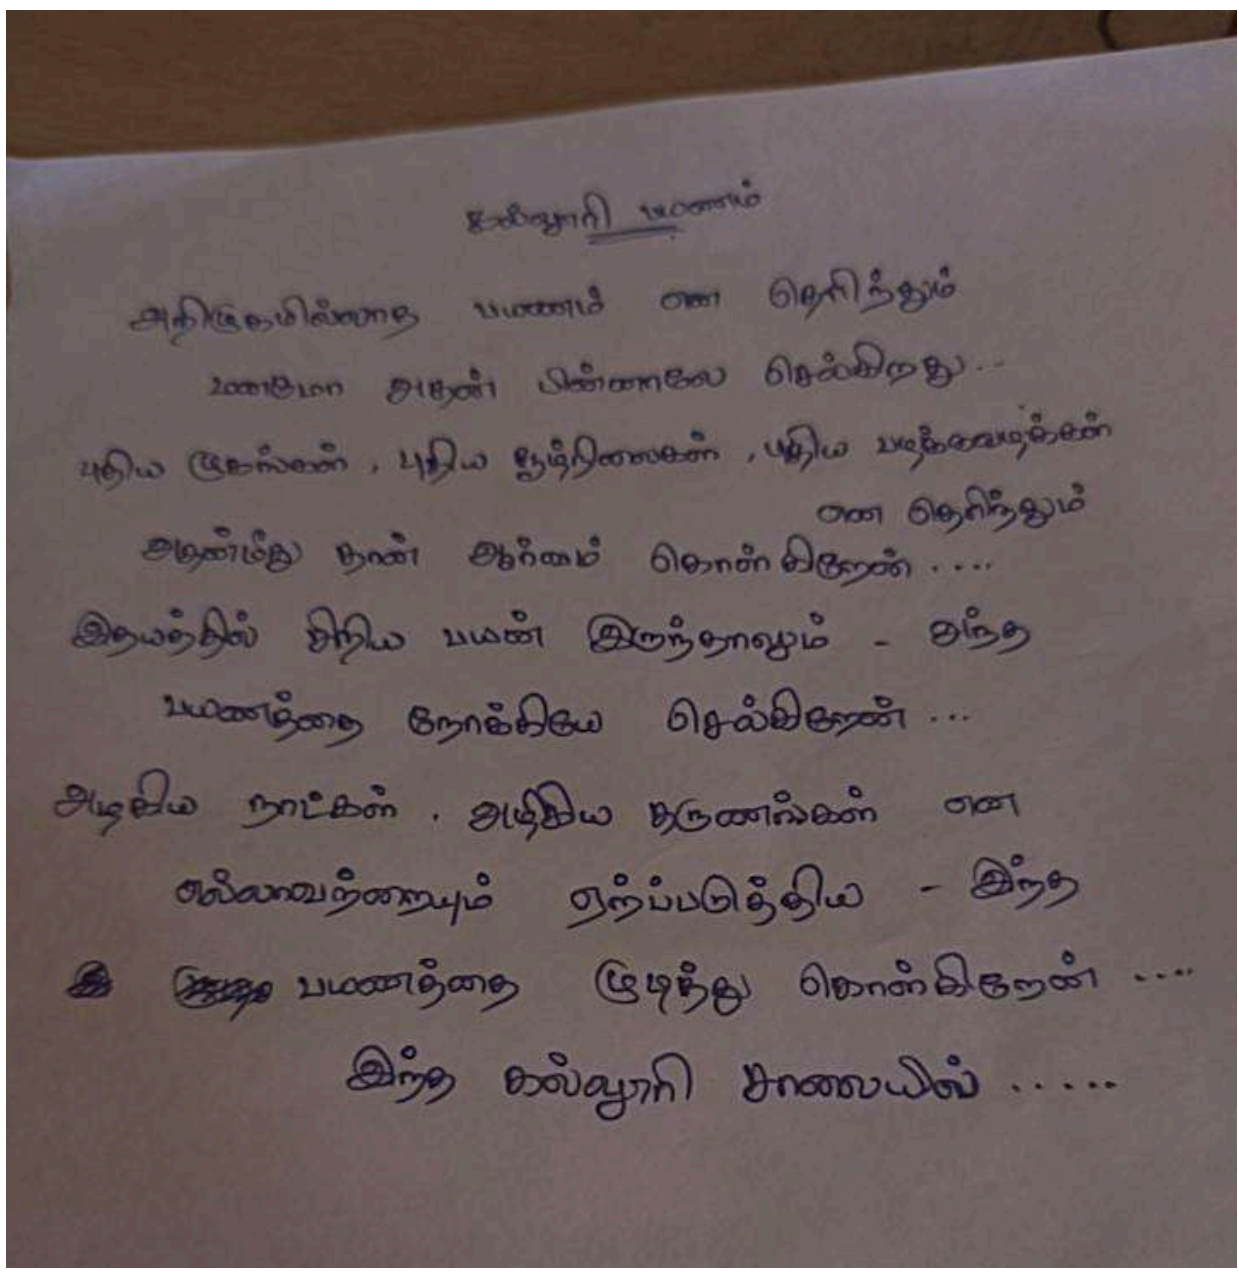 கல்லூரி பயணம்
அறிமுகமில்லாத பயணம் என தெரிந்தும்
மனமோ அதன் பின்னாலே செல்கிறது...
புதிய முகங்கள், புதிய சூழ்நிலைகள், புதிய
என தெரிந்தும்
அதன்மீது தான் ஆர்வம் கொள்கிறேன்....
இதயத்தில் சிறிய பயன் இருந்தாலும் - அந்த
பயணத்தை நோக்கியே செல்கிறேன்...
அழகிய நாட்கள், அழகிய தருணங்கள் என
எல்லாவற்றையும் ஏற்ப்படுத்திய - இந்த
பயணத்தை முடித்து கொள்கிறேன்....
இந்த கல்லூரி சாலையில்.....